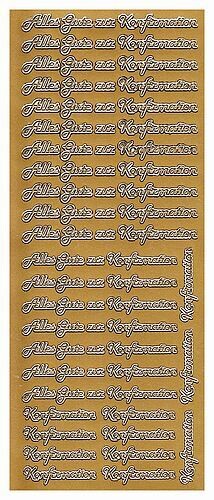 Alles Gute zur Konfirmation
Alles Gute zur Konfirmation
Alles Gute zur Konfirmation
Alles Gute zur Konfirmation
Alles Gute zur Konfirmation
Alles Gute zur Konfirmation
Alles Gute zur Konfirmation
Alles Gute zur Konfirmation
Alles Gute zur Konfirmation
Alles Gute zur Konfirmation
Alles Gute zur Konfirmation
Alles Gute zur Konfirmation
Alles Gute zur Konfirmation
Alles Gute zur Konfirmation
Alles Gute zur Konfirmation
Alles Gute zur Konfirmation
Alles Gute zur Konfirmation
Alles Gute zur Konfirmation
Konfirmation Konfirmation
Konfirmation Konfirmation
Konfirmation Konfirmation
Konfirmation Konfirmation
Konfirmation
Konfirmation
Konfirmation